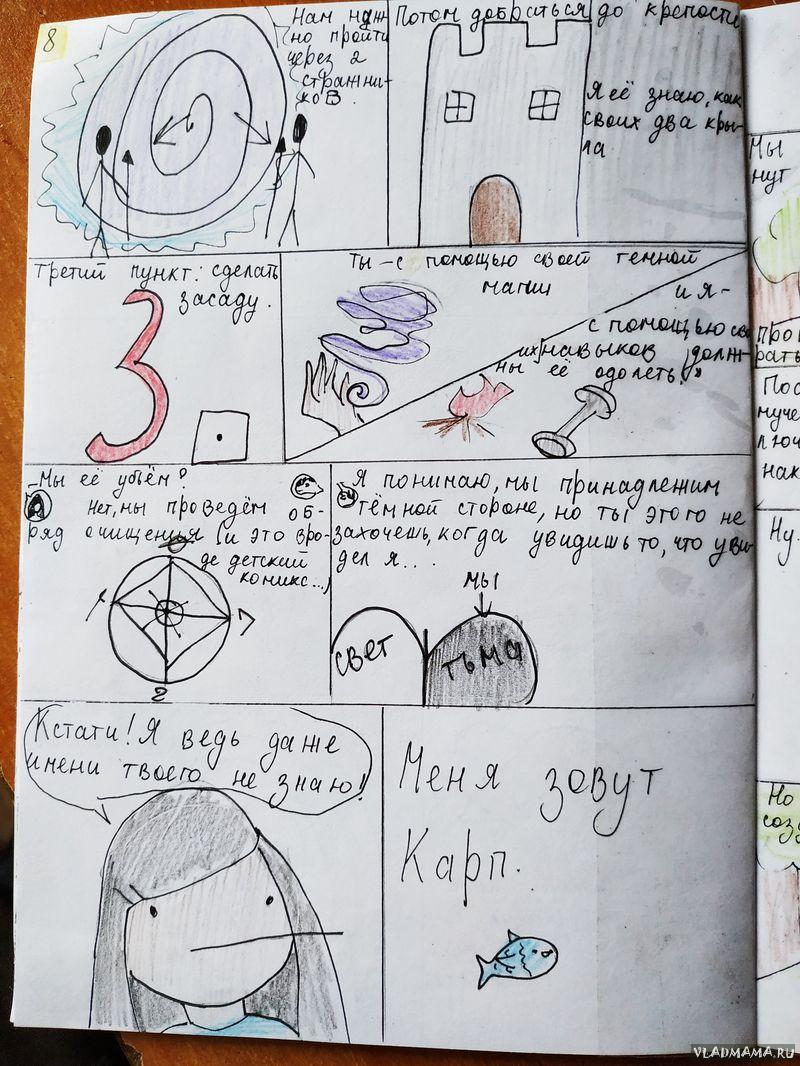 8
Нам нуж
но пройти
через 2
стражни-
ков.
Потом добраться до крепости
Я её знаю, как
своих два кры-
ла
Третий пункт: сделать
засаду.
3
Ты – с помощью своей темной
магии
и я –
с помощью сво
их навыков долж-
ны её одолеть!»
– Мы её убьём?
Нет, мы проведём об-
ряд очищенья (и это вро-
де детский
комикс...)
Я понимаю, мы принадлежим
тёмной стороне, но ты этого не
захочешь, когда увидишь то, что уви-
дел я...
мы
свет
тьма
Кстати! Я ведь даже
имени твоего не знаю!
Меня зовут
Карп.
Мы
нут
рать
Пос
муче
ключ
нак
Ну.
Но
созд
VLADMAMA.RU